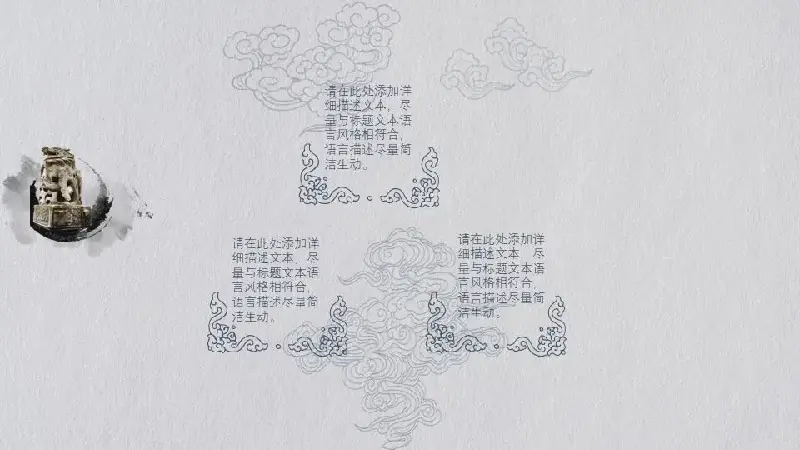 请在此处添加详
细描述文本，尽
量与标题文本语
言风格相符合，
语言描述尽量简
洁生动。
请在此处添加详
细描述文本，尽
量与标题文本语
言风格相符合，
语言描述尽量简
洁生动。
请在此处添加详
细描述文本，尽
量与标题文本语
言风格相符合，
语言描述尽量简
洁生动。